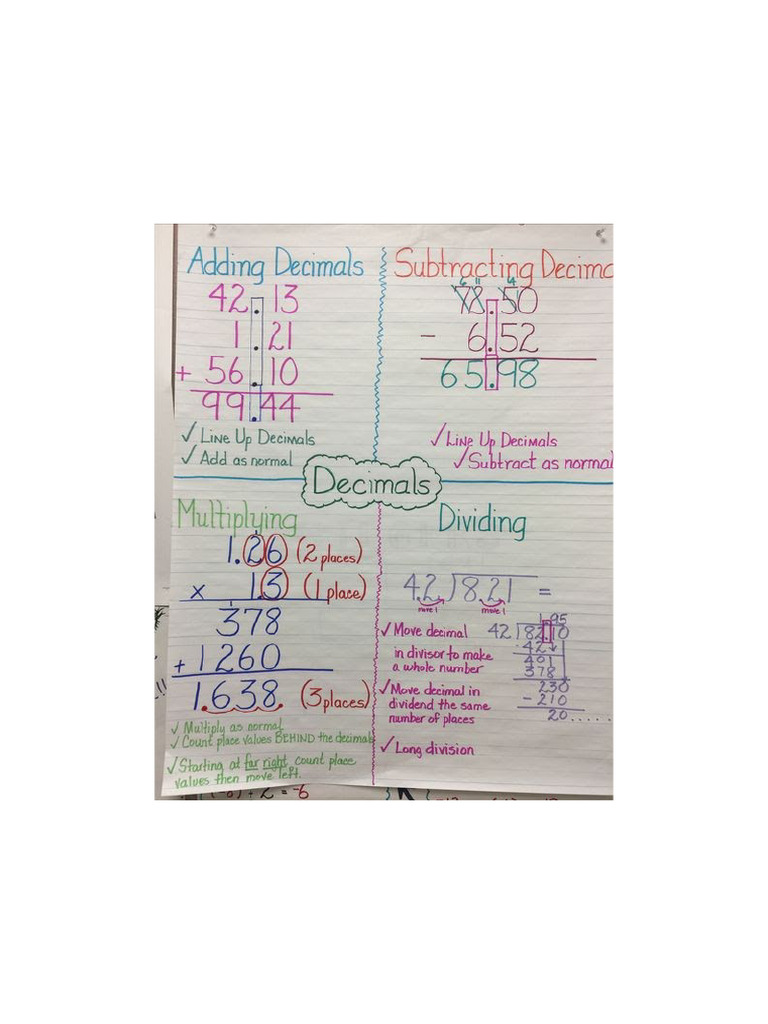 Adding Decimals
42.13
1.21
+ 56.10
99.44
✓ Line Up Decimals
✓ Add as normal
Subtracting Decima
6 11 4
78.50
- 6.52
65.98
✓ Line Up Decimals
✓ Subtract as normal
Decimals
Multiplying
1.26 (2 places)
x 1.3 (1 place)
378
+ 1260
1.638. (3 places)
✓ Multiply as normal
✓ Count place values BEHIND the decimals
✓ Starting at far right, count place
values then move left.
Dividing
4.2)8.21 =
move 1 move 1
✓ Move decimal
in divisor to make
a whole number
✓ Move decimal in
dividend the same
number of places
✓ Long division
1.95
42)82.10
-42
401
378
230
- 210
20.....
+ 2 = -6